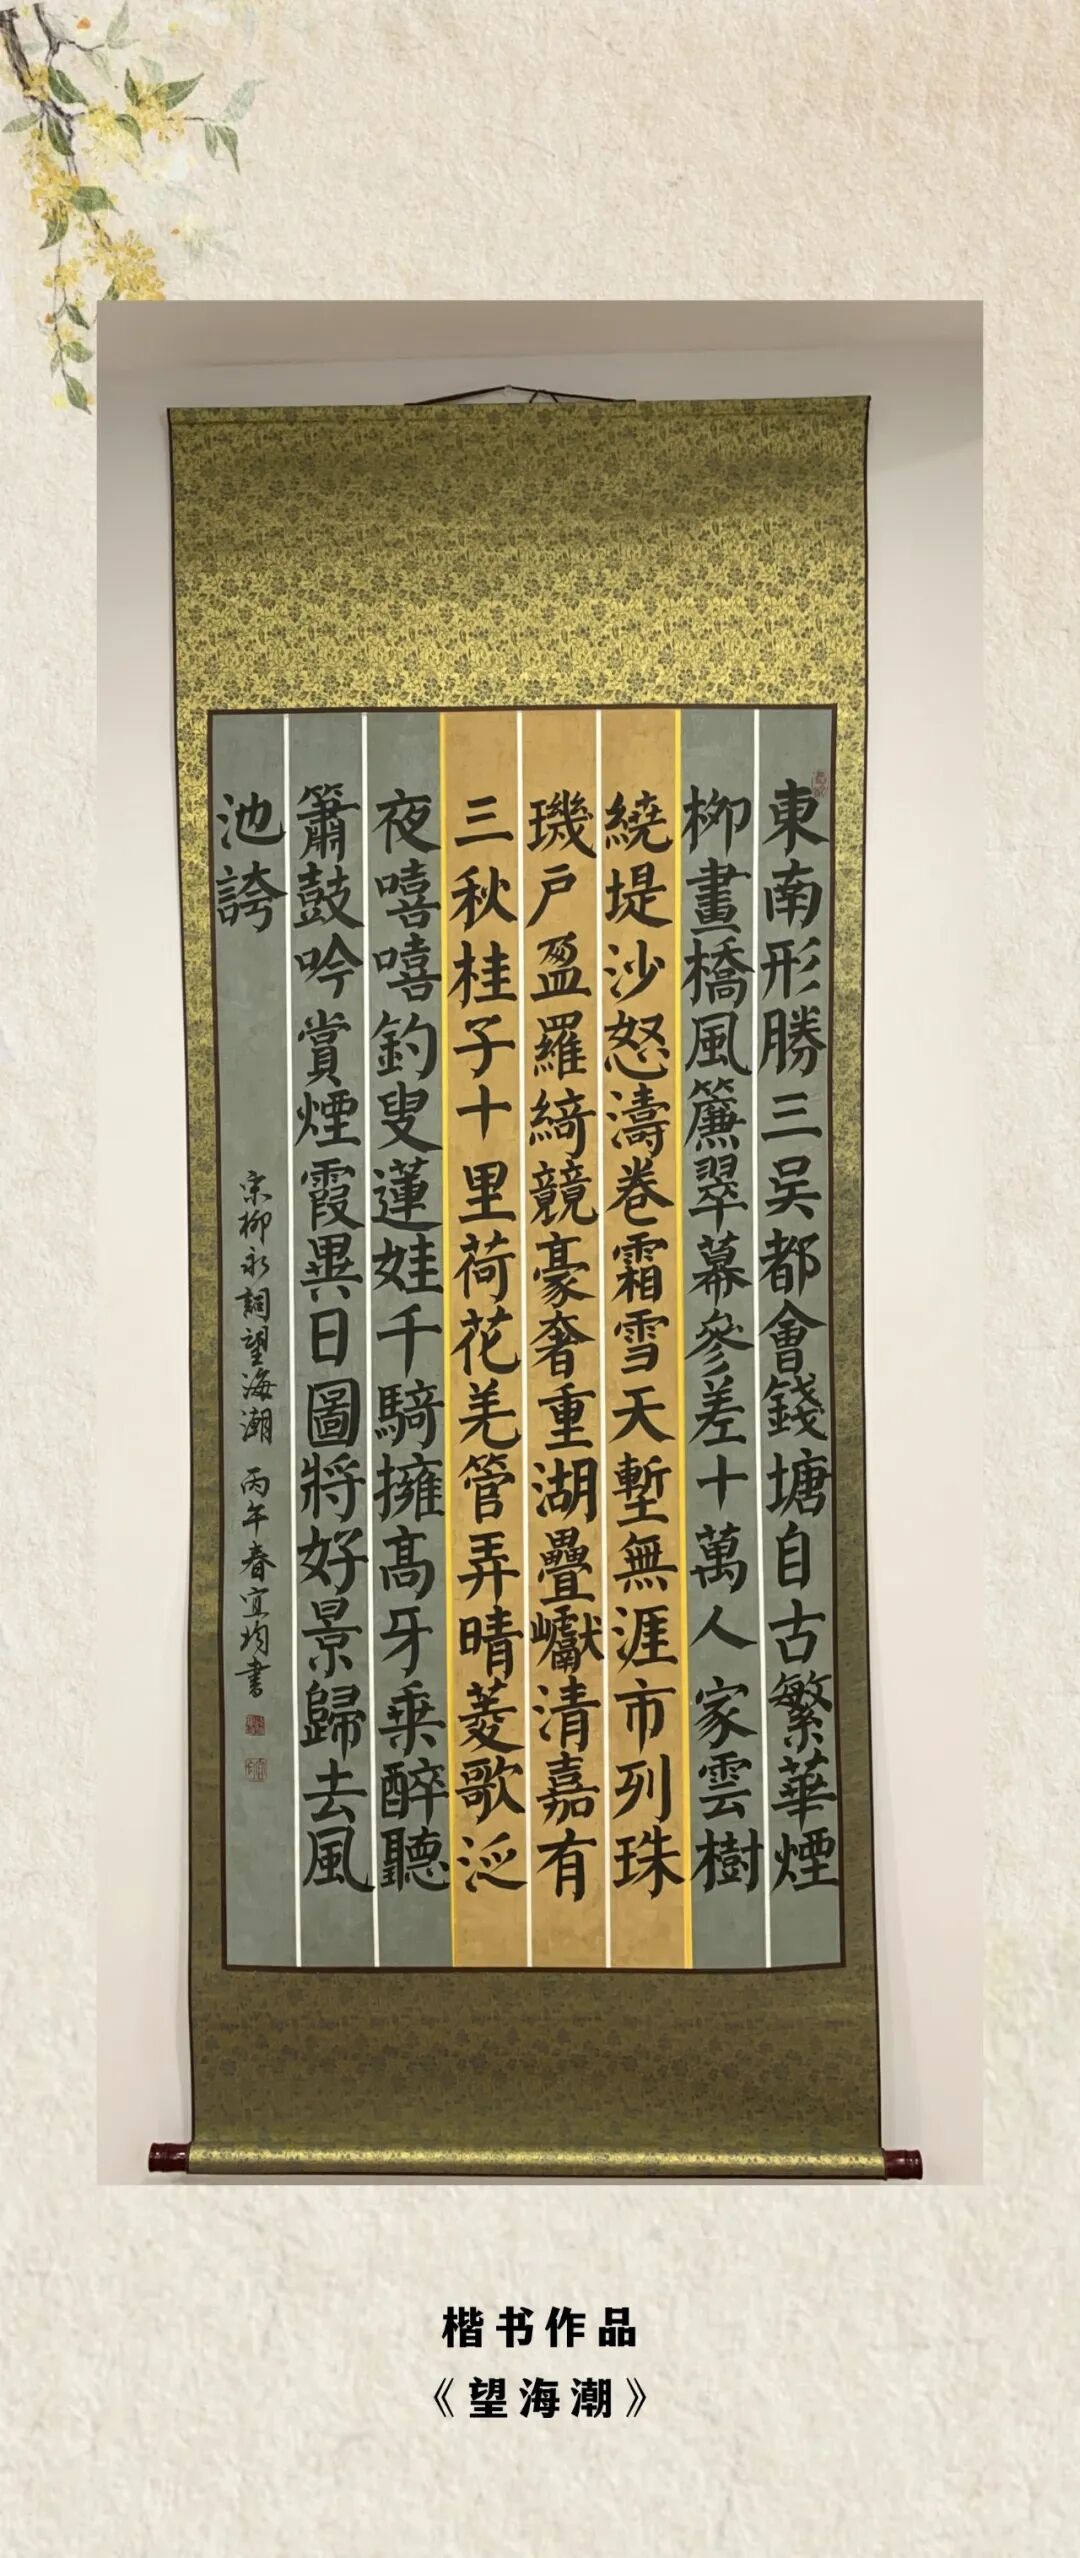 東南形勝三吴都會錢塘自古繁華煙
柳畫橋風簾翠幕參差十萬人家雲樹
繞堤沙怒濤卷霜雪天塹無涯市列珠
璣戶盈羅綺競豪奢重湖疊巘清嘉有
三秋桂子十里荷花羌管弄晴菱歌泛
夜嘻嘻釣叟蓮娃千騎擁髙牙乘醉聽
簫鼓吟賞煙霞異日圖將好景歸去風
池誇
宋柳永詞望海潮 丙午春宜均書
楷书作品
《望海潮》